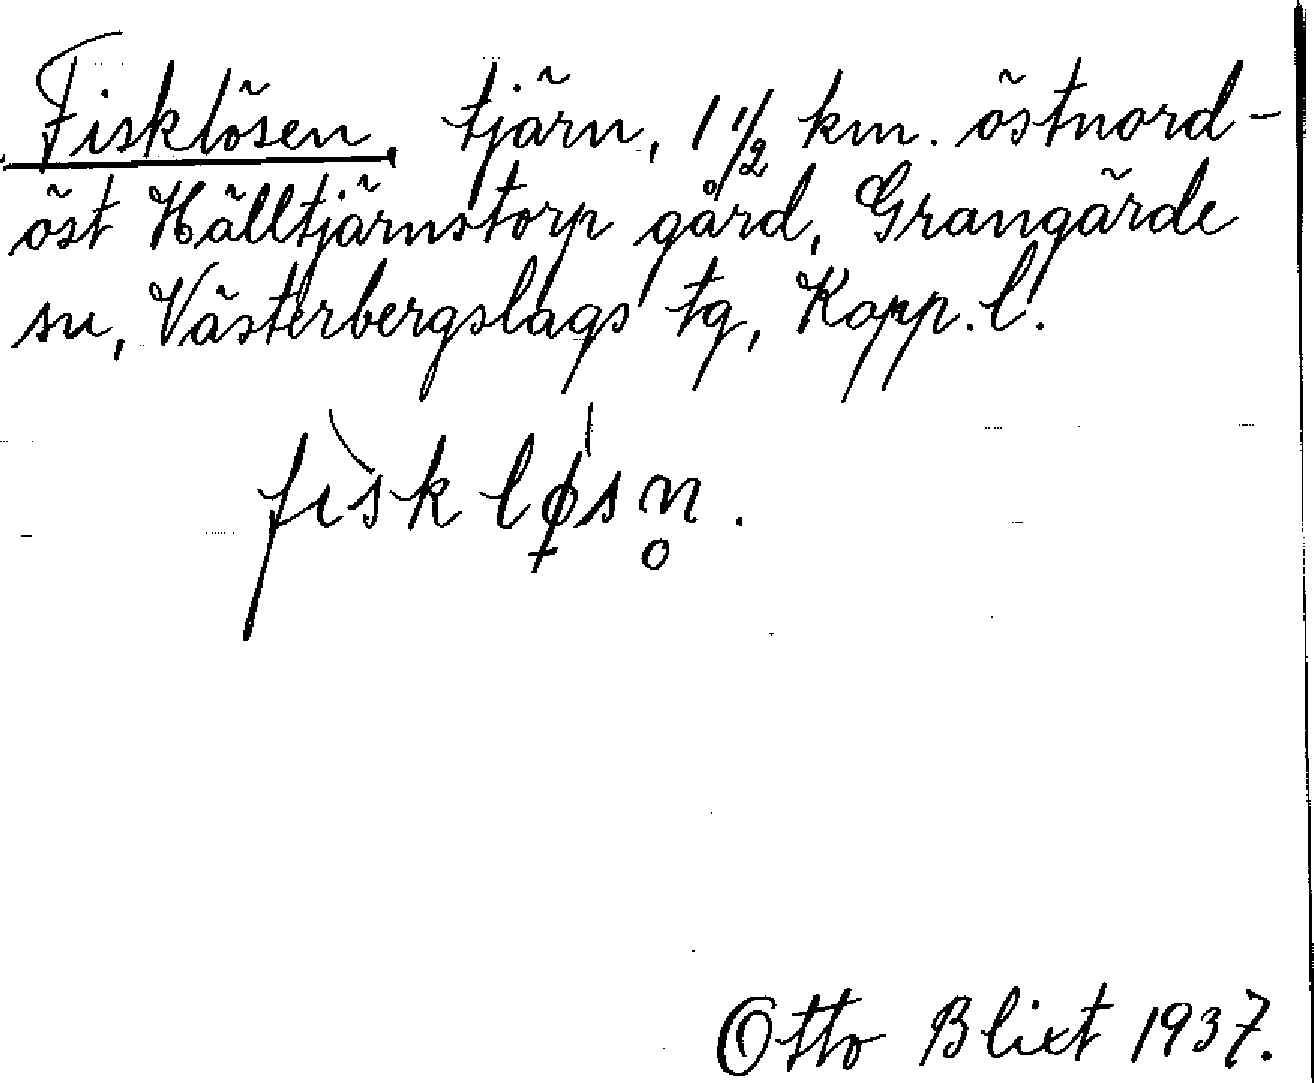 Fisklösen, tjärn, 1 1/2 km. östnord-
öst Hälltjärnstorp gård, Grangärde
sn, Västerbergslags tg, Kopp. l.
fìskløsn̥.
Otto Blixt 1937.